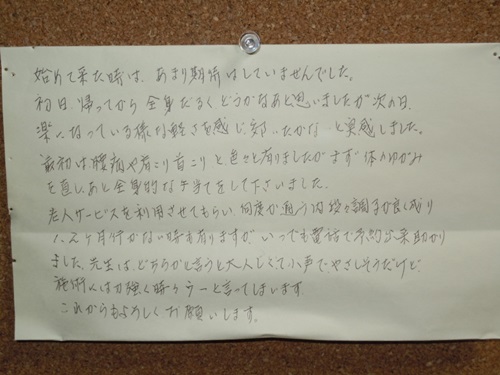 始めて来た時は、あまり期待はしていませんでした。
初日、帰ってから全身だるくどうかなあと思いましたが次の日、
楽になっている様な軽さを感じ、効いたかな と実感しました。
最初は腰痛や肩こり首こりと色々と有りましたがまず体のゆがみ
を直しあと全身的な手当てをして下さいました。
老人サービスを利用させてもらい、何度か通う内段々調子が良く成り
1、2ヶ月行かない時も有りますが、いつでも電話で予約出来助かり
ました。先生は、どちらかと言うと大人しくて小声でやさしそうだけど、
施術には力強く時々うーと言ってしまいます。
これからもよろしくお願いします。